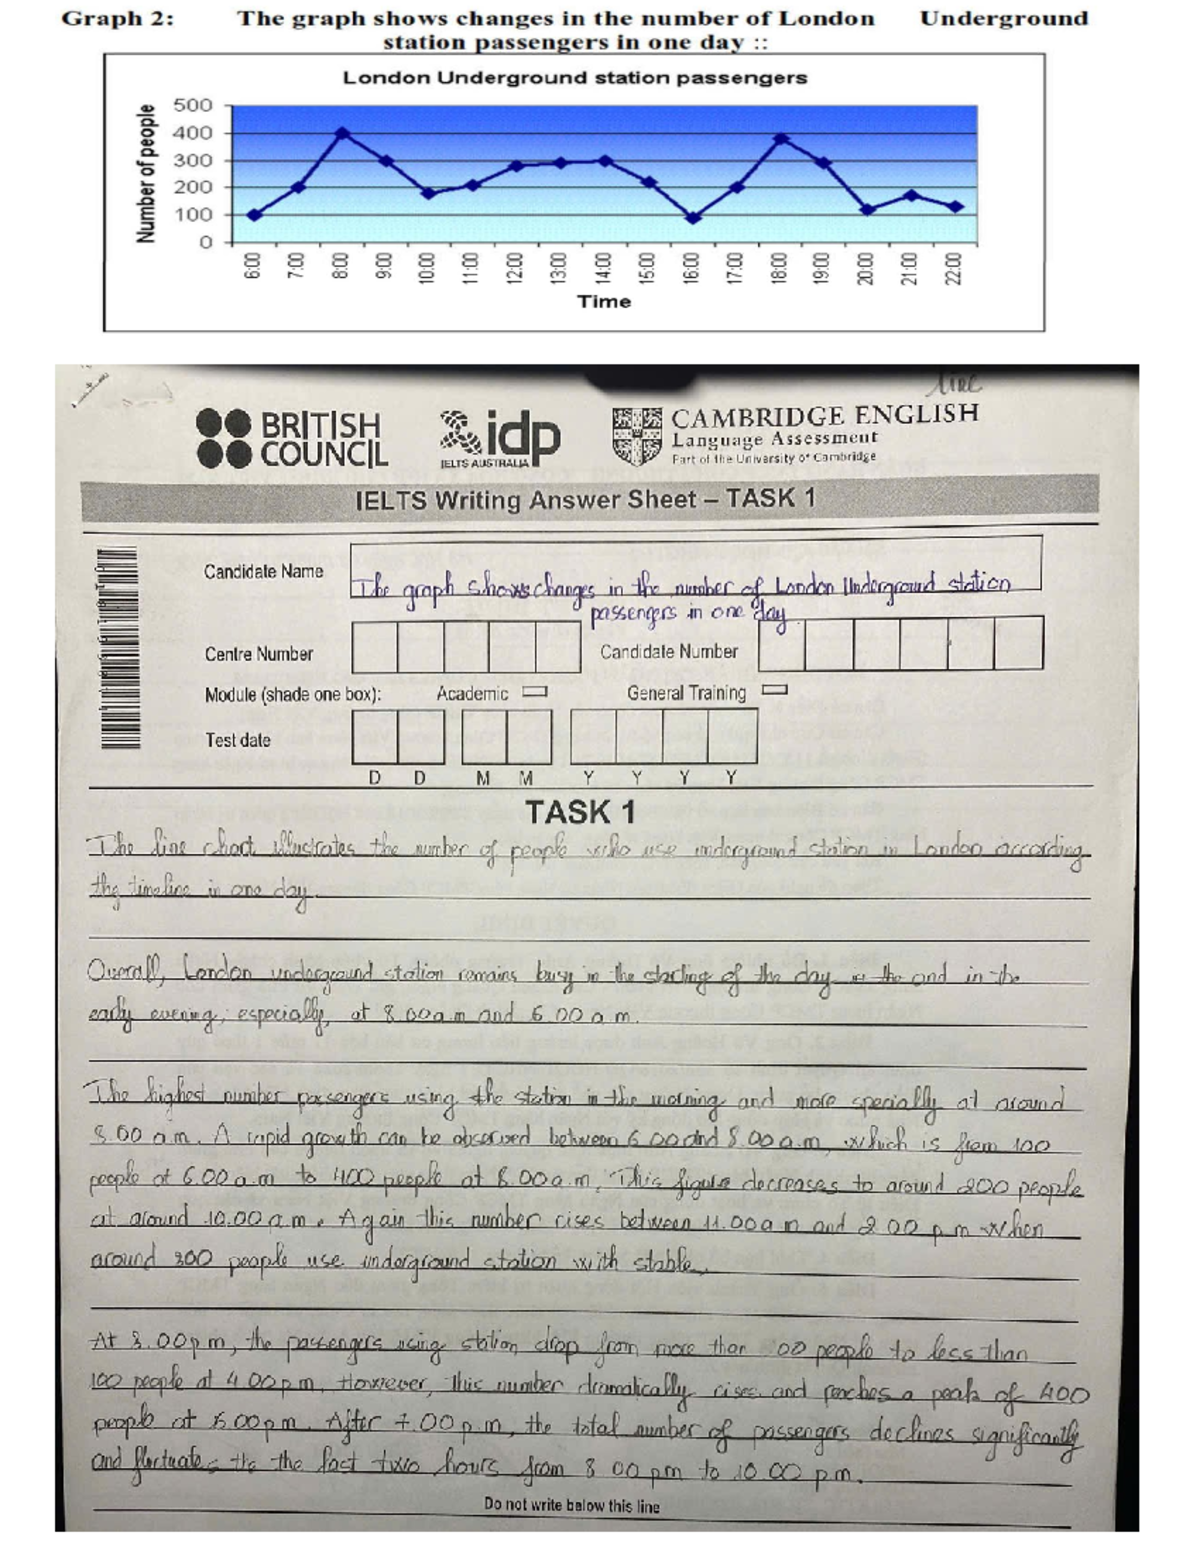 Graph 2: The graph shows changes in the number of London Underground
station passengers in one day ::
London Underground station passengers
Number of people
500
400
300
200
100
0
6:00 7:00 8:00 9:00 10:00 11:00 12:00 13:00 14:00 15:00 16:00 17:00 18:00 19:00 20:00 21:00 22:00
Time
line
BRITISH COUNCIL
idp
IELTS AUSTRALIA
CAMBRIDGE ENGLISH
Language Assessment
Part of the University of Cambridge
IELTS Writing Answer Sheet – TASK 1
Candidate Name
The graph shows changes in the number of London Underground station
passengers in one day
Centre Number Candidate Number
Module (shade one box): Academic General Training
Test date
D D M M Y Y Y Y
TASK 1
The line chart illustrates the number of people who use underground station in London according
the timeline in one day
Overall, London underground station remains busy in the starting of the day and in the
early evening, especially, at 8.00a.m and 6.00 a.m.
The highest number passengers using the station in the morning and more specially at around
8.00 a.m. A rapid growth can be observed between 6.00 and 8.00 a.m, which is from 100
people at 6.00 a.m to 400 people at 8.00a.m, This figure decreases to around 200 people
at around 10.00 a.m. Again this number rises between 11.00a.m and 2.00 p.m when
around 300 people use underground station with stable.
At 3.00p.m, the passengers using station drop from more than people to less than
100 people at 4.00p.m. However, this number dramatically rises and reaches a peak of 400
people at 6.00pm. After 7.00 p.m, the total number of passengers declines significantly
and fluctuates the last two hours from 8 00 pm to 10.00 p.m.
Do not write below this line